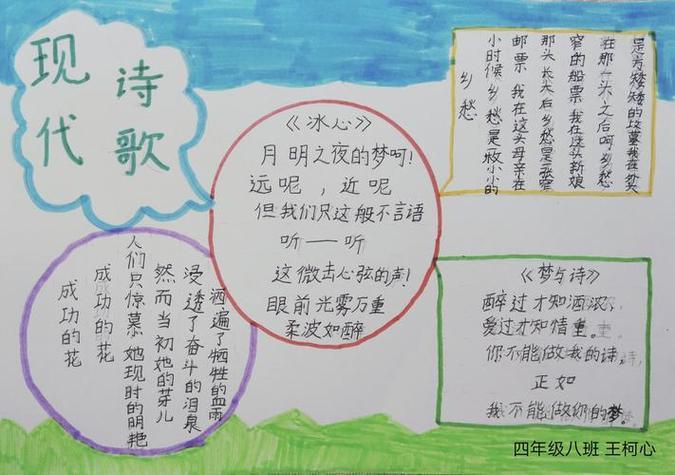 现代
诗歌
《冰心》
月明之夜的梦呵!
远呢，近呢
但我们只这般不言语
听——听
这微击心弦的声!
眼前光雾万重
柔波如醉
乡愁
小时候 乡愁是一枚小小的
邮票 我在这头母亲在
那头 长大后 乡愁是张窄
窄的船票 我在这头新娘
在那一头 之后呵 乡愁
是方矮矮的坟墓我在外头
成功的花
成功的花
人们只惊慕她现时的明艳
然而当初她的芽儿
浸透了奋斗的泪泉
洒遍了牺牲的血雨
《梦与诗》
醉过才知酒浓，
爱过才知情重。
你不能做我的诗，
正如
我不能做你的梦。
四年级八班 王柯心